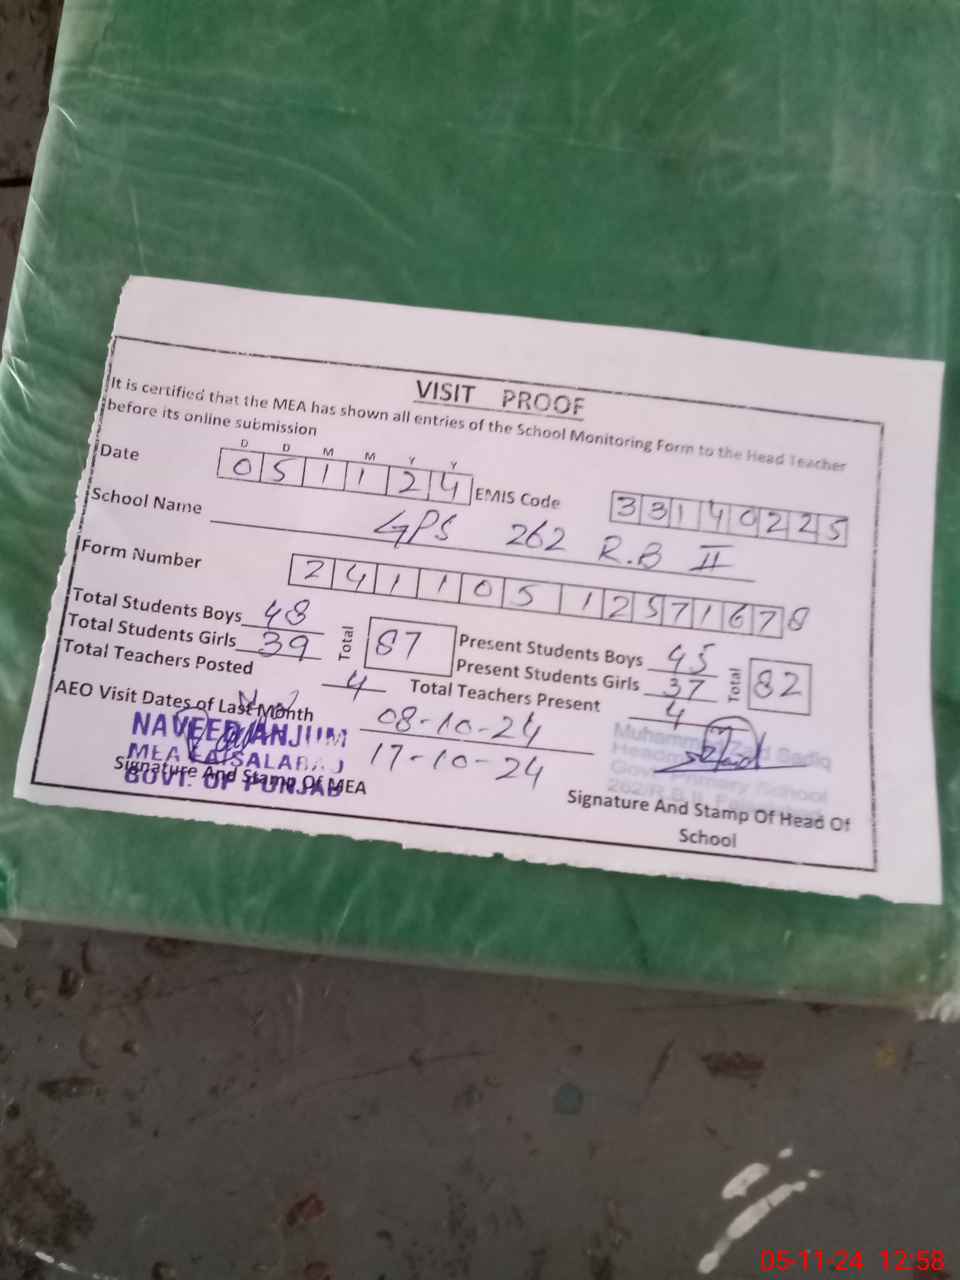 VISIT PROOF
It is certified that the MEA has shown all entries of the School Monitoring Form to the Head Teacher
before its online submission
D D M M Y Y
Date 0 5 1 1 2 4 EMIS Code 3 3 1 4 0 2 2 5
School Name GPS 262 R.B II
Form Number 2 4 1 1 0 5 1 2 5 7 1 6 7 8
Total Students Boys 48 Present Students Boys 45
Total Students Girls 39 Total 87 Present Students Girls 37 Total 82
Total Teachers Posted 4 Total Teachers Present 4
AEO Visit Dates of Last Month 08-10-24
17-10-24
NAVEED ANJUM
MEA FAISALABAD
GOVT. OF PUNJAB
Signature And Stamp Of MEA
Muhammad Zaid Sadiq
Govt. Primary School
262/R.B II,
Signature And Stamp Of Head Of
School
05-11-24 12:58